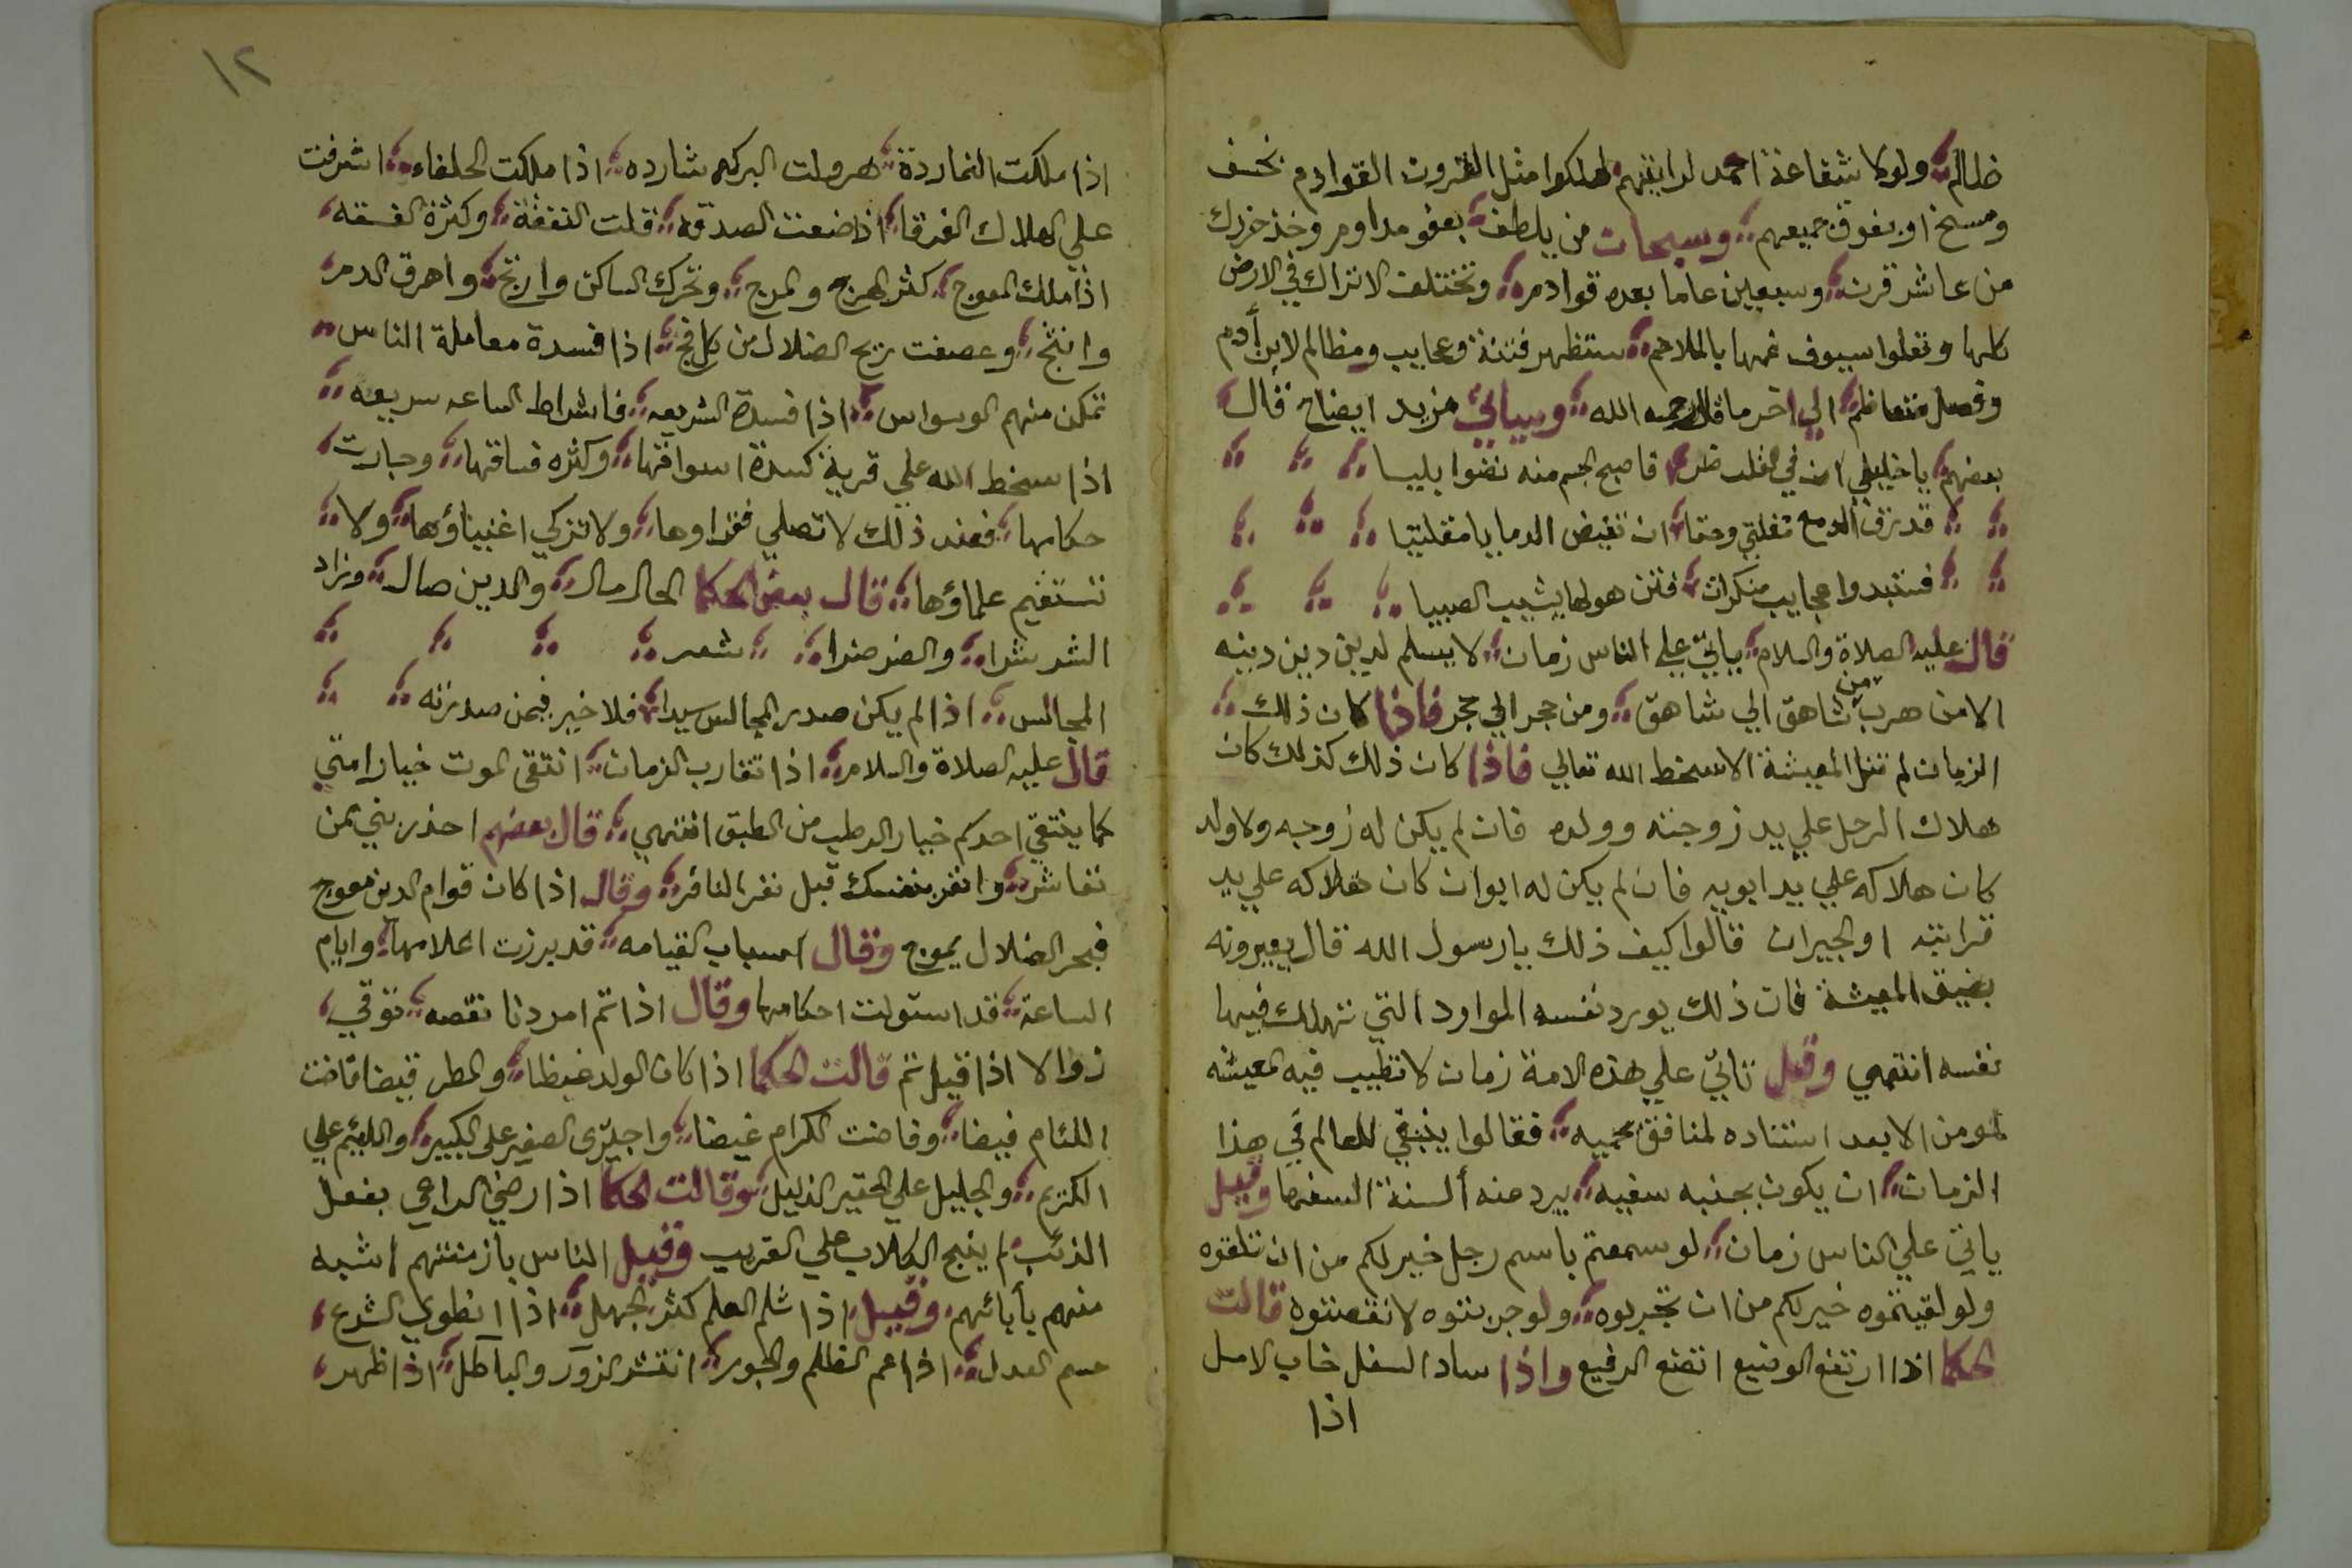 ظالم ولولا شفاعة احمد لرايتهم لهلكوا مثل القرون القوادم بخسف
ومسخ او بفوق جميعهم وسبحات من يلطف بعفو مداوم وخذ خزرك
من عاشر قرن وسبعين عاما بعده قوادم وتختلف الاتراك في الارض
كلها وتعلوا سيوف غمها بالملاحم ستظهر فتنة وعجايب ومظالم لابن أدم
وفصل متعاظم الي اخر ما قال رحمه الله وسياتي مزيد ايضاح قال
بعضهم يا خليلي ان في القلب فاصبح الجسم منه نضوا بليا
قد نزف الدمع مقلتي وحقا ان تفيض الدما يا مقلتيا
فستبدوا عجايب منكرات فتن هولها يشيب الصبيا
قال عليه الصلاة والسلام ياتي علي الناس زمان لا يسلم لدين دين دينه
الا من هرب من شاهق الي شاهق ومن حجر الي حجر فاذا كان ذلك
الزمان لم تنل المعيشة الا بسخط الله تعالي فاذا كان ذلك كذلك كان
هلاك الرجل علي يد زوجته وولده فان لم يكن له زوجه ولا ولد
كان هلاكه علي يد ابويه فان لم يكن له ابوان كان هلاكه علي يد
قرابته او الجيران قالوا كيف ذلك يا رسول الله قال يعيرونه
بضيق المعيشة فان ذلك يورد نفسه الموارد التي تهلك فيها
نفسه انتهي وقيل تاتي علي هذه الامة زمان لا تطيب فيه المعيشه
لمومن الا بعد استناده لمنافق يحميه فقالوا ينبغي للعالم في هذا
الزمان ان يكون بجنبه سفيه يرد عنه ألسنة السفها وقيل
ياتي علي الناس زمان لو سمعتم باسم رجل خير لكم من ان تلقوه
ولو لقيتموه خير لكم من ان تجربوه ولو جربتوه لانقصتوه قالت
الحكما اذا ارتفع الوضيع اتضع الرفيع واذا ساد السفل خاب الامل
اذا
١٢
اذا ملكت النماردة هرولت البركه شارده اذا ملكت الخلفاء اشرفت
علي الهلاك الفرقا اذا ضعفت الصدقه قلت النفقة وكثرة الفسقه
اذا ملك المعوج كثر الهرج والمرج وتحرك الساكن وارتج واهرق الدم
وانثج وعصفت ريح الضلال من كل فج اذا فسدة معاملة الناس
تمكن منهم الوسواس اذا فسدة الشريعه فاشراط الساعه سريعه
اذا سخط الله علي قرية كسدة اسواقها وكثره فساقها وجارت
حكامها فعند ذلك لا تصلي فقراوها ولا تزكي اغنياؤها ولا
تستقيم علماؤها قال بعض الحكما الحال مال والدين صال وزاد
الشر شرا والضر ضرا شعر
المجالس اذا لم يكن صدر المجالس سيدا فلا خير فيمن صدرته
قال عليه الصلاة والسلام اذا تقارب الزمان انتقي الموت خيار امتي
كما ينتقي احدكم خيار الرطب من الطبق انتهي قال بعضهم احذر بني من
تعاشر وانفر بنفسك قبل نفر النافر وقال اذا كان قوام الدين معوج
فبحر الضلال يموج وقال اسباب القيامه قد برزت اعلامها وايام
الساعة قد استولت احكامها وقال اذا تم امر دنا نقصه توقي
زوالا اذا قيل تم قالت الحكما اذا كان الولد غيظا والمطر قيضا فاضت
اللئام فيضا وفاضت الكرام غيضا واجترى الصغير علي الكبير واللئيم علي
الكريم والجليل علي الحقير الذليل وقالت الحكما اذا رضي الراعي بفعل
الذئب لم ينبح الكلاب علي الغريب وقيل الناس بازمنتهم اشبه
منهم بأبائهم وقيل اذا ثلم العلم كثر الجهل اذا انطوي الشرع
حسم العدل اذا عم الظلم والجور انتشر الزور والباطل اذا ظهر